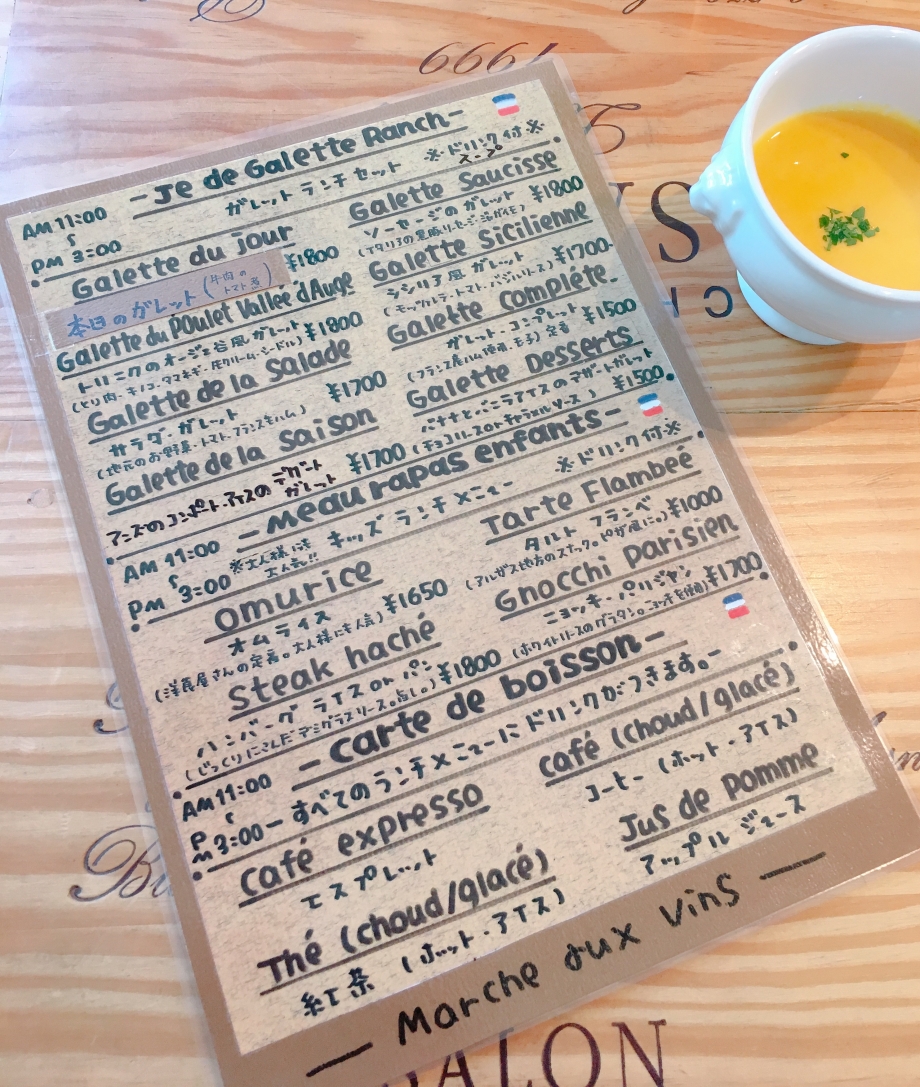 1999
-Je de Galette Ranch-
ガレット ランチセット
※ドリンク付※
スープ
AM 11:00
PM 3:00
Galette du jour
¥1800
本日のガレット(牛肉のトマト煮)
Galette du Poulet Vallée d'Auge
トリニクのオージュ谷風ガレット ¥1800
(とり肉・キノコ・タマネギ・生クリーム・シードル)
Galette de la Salade
サラダ・ガレット ¥1700
(地元のお野菜・トマト・フランスキハム)
Galette de la Saison
アンズのコンポート・アイスの デザートガレット ¥1700
Galette Saucisse
ソーセージのガレット ¥1800
Galette Sicilienne
シシリア風 ガレット ¥1700-
(モッツァレラ・トマト・バジルソース)
Galette Compléte-
ガレット・コンプレット ¥1500
Galette Desserts
バナナとバニラアイスのデザートガレット
(チョコソースorキャラメルソース) ¥1500
-Meau rapas enfants-
キッズ ランチメニュー
※ドリンク付※
AM 11:00
PM 3:00
※大人様にも大人気!!
Omurice
オムライス ¥1650
(洋食屋さんの定番。大人様にも人気)
Steak haché
ハンバーグ ライス or パン ¥1800
(じっくりにこんだデミグラスソース。)
Tarte Flambeé
タルト フランベ ¥1000
(アルザス地方のスナック。ピザ風に。)
Gnocchi Parisien
ニョッキ・パリジャン ¥1700
(ホワイトソースのグラタン。ニョッキを使用)
-Carte de boisson-
AM 11:00
PM 3:00
-すべてのランチメニューにドリンクがつきます。-
Café expresso
エスプレット
Thé (choud/glacé)
紅茶 (ホット・アイス)
café (choud/glacé)
コーヒー (ホット・アイス)
Jus de Pomme
アップル ジュース
— Marche aux vins —
SALON